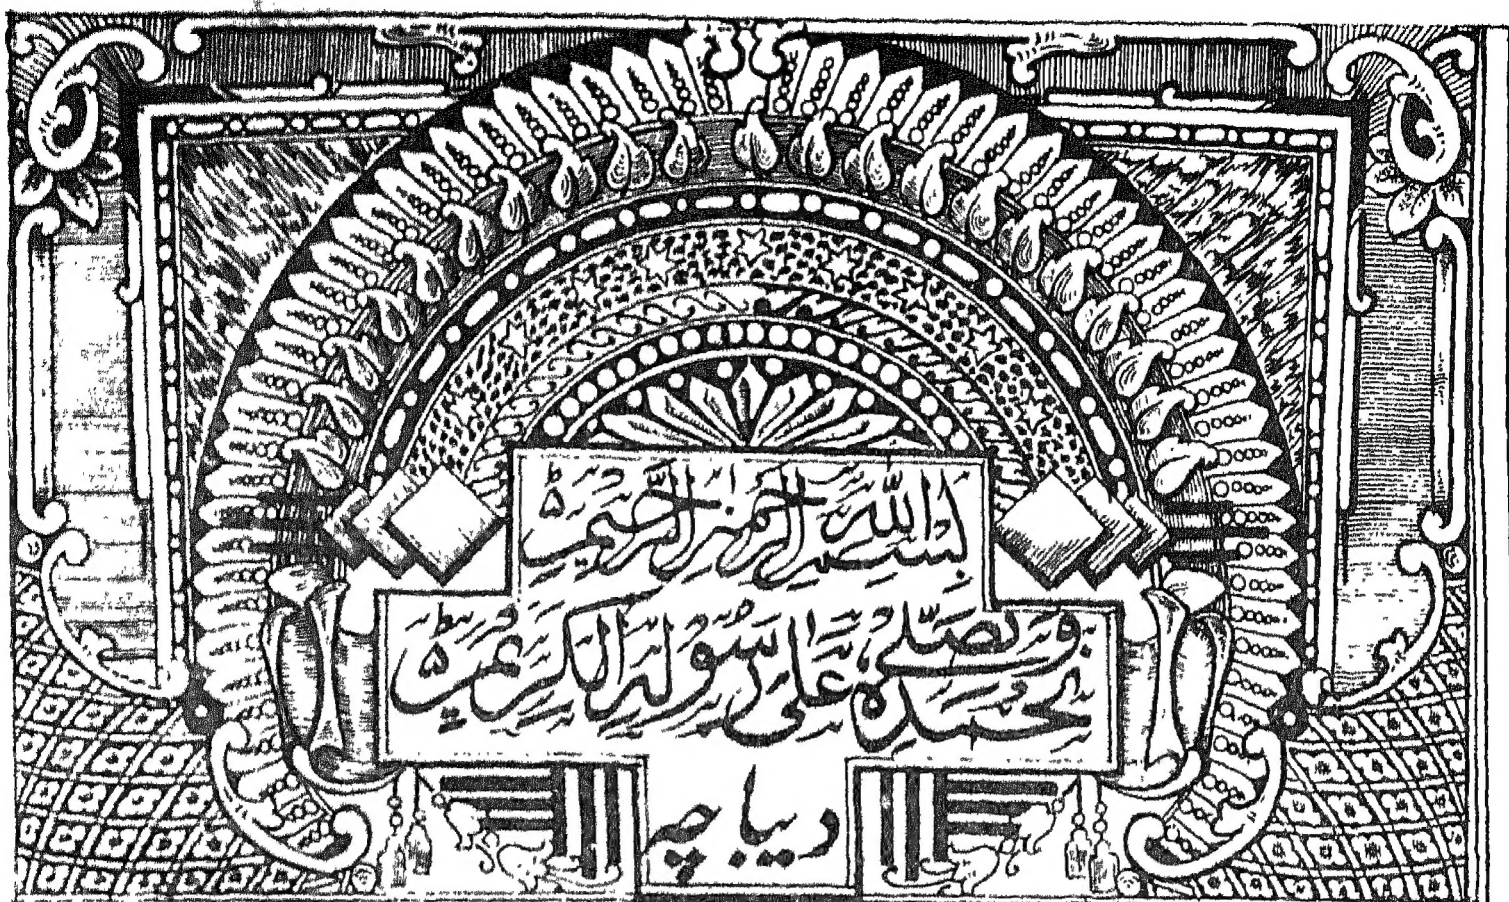 بِسْمِ اللّٰهِ الرَّحْمٰنِ الرَّحِيْمِ ؕ
نَحْمَدُهٗ وَنُصَلِّيْ عَلٰى رَسُوْلِهِ الْكَرِيْمِ ؕ
دیباچہ